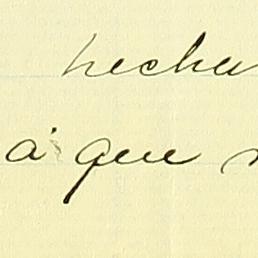 hecha
á que